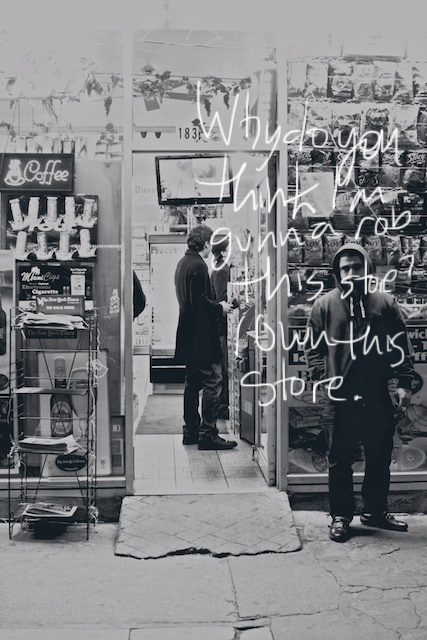 183
Coffee
Why do you
think I'm
gunna rob
this store?
I own this
store.
MiamiCigs
Electronic
Cigarette
The New York Times